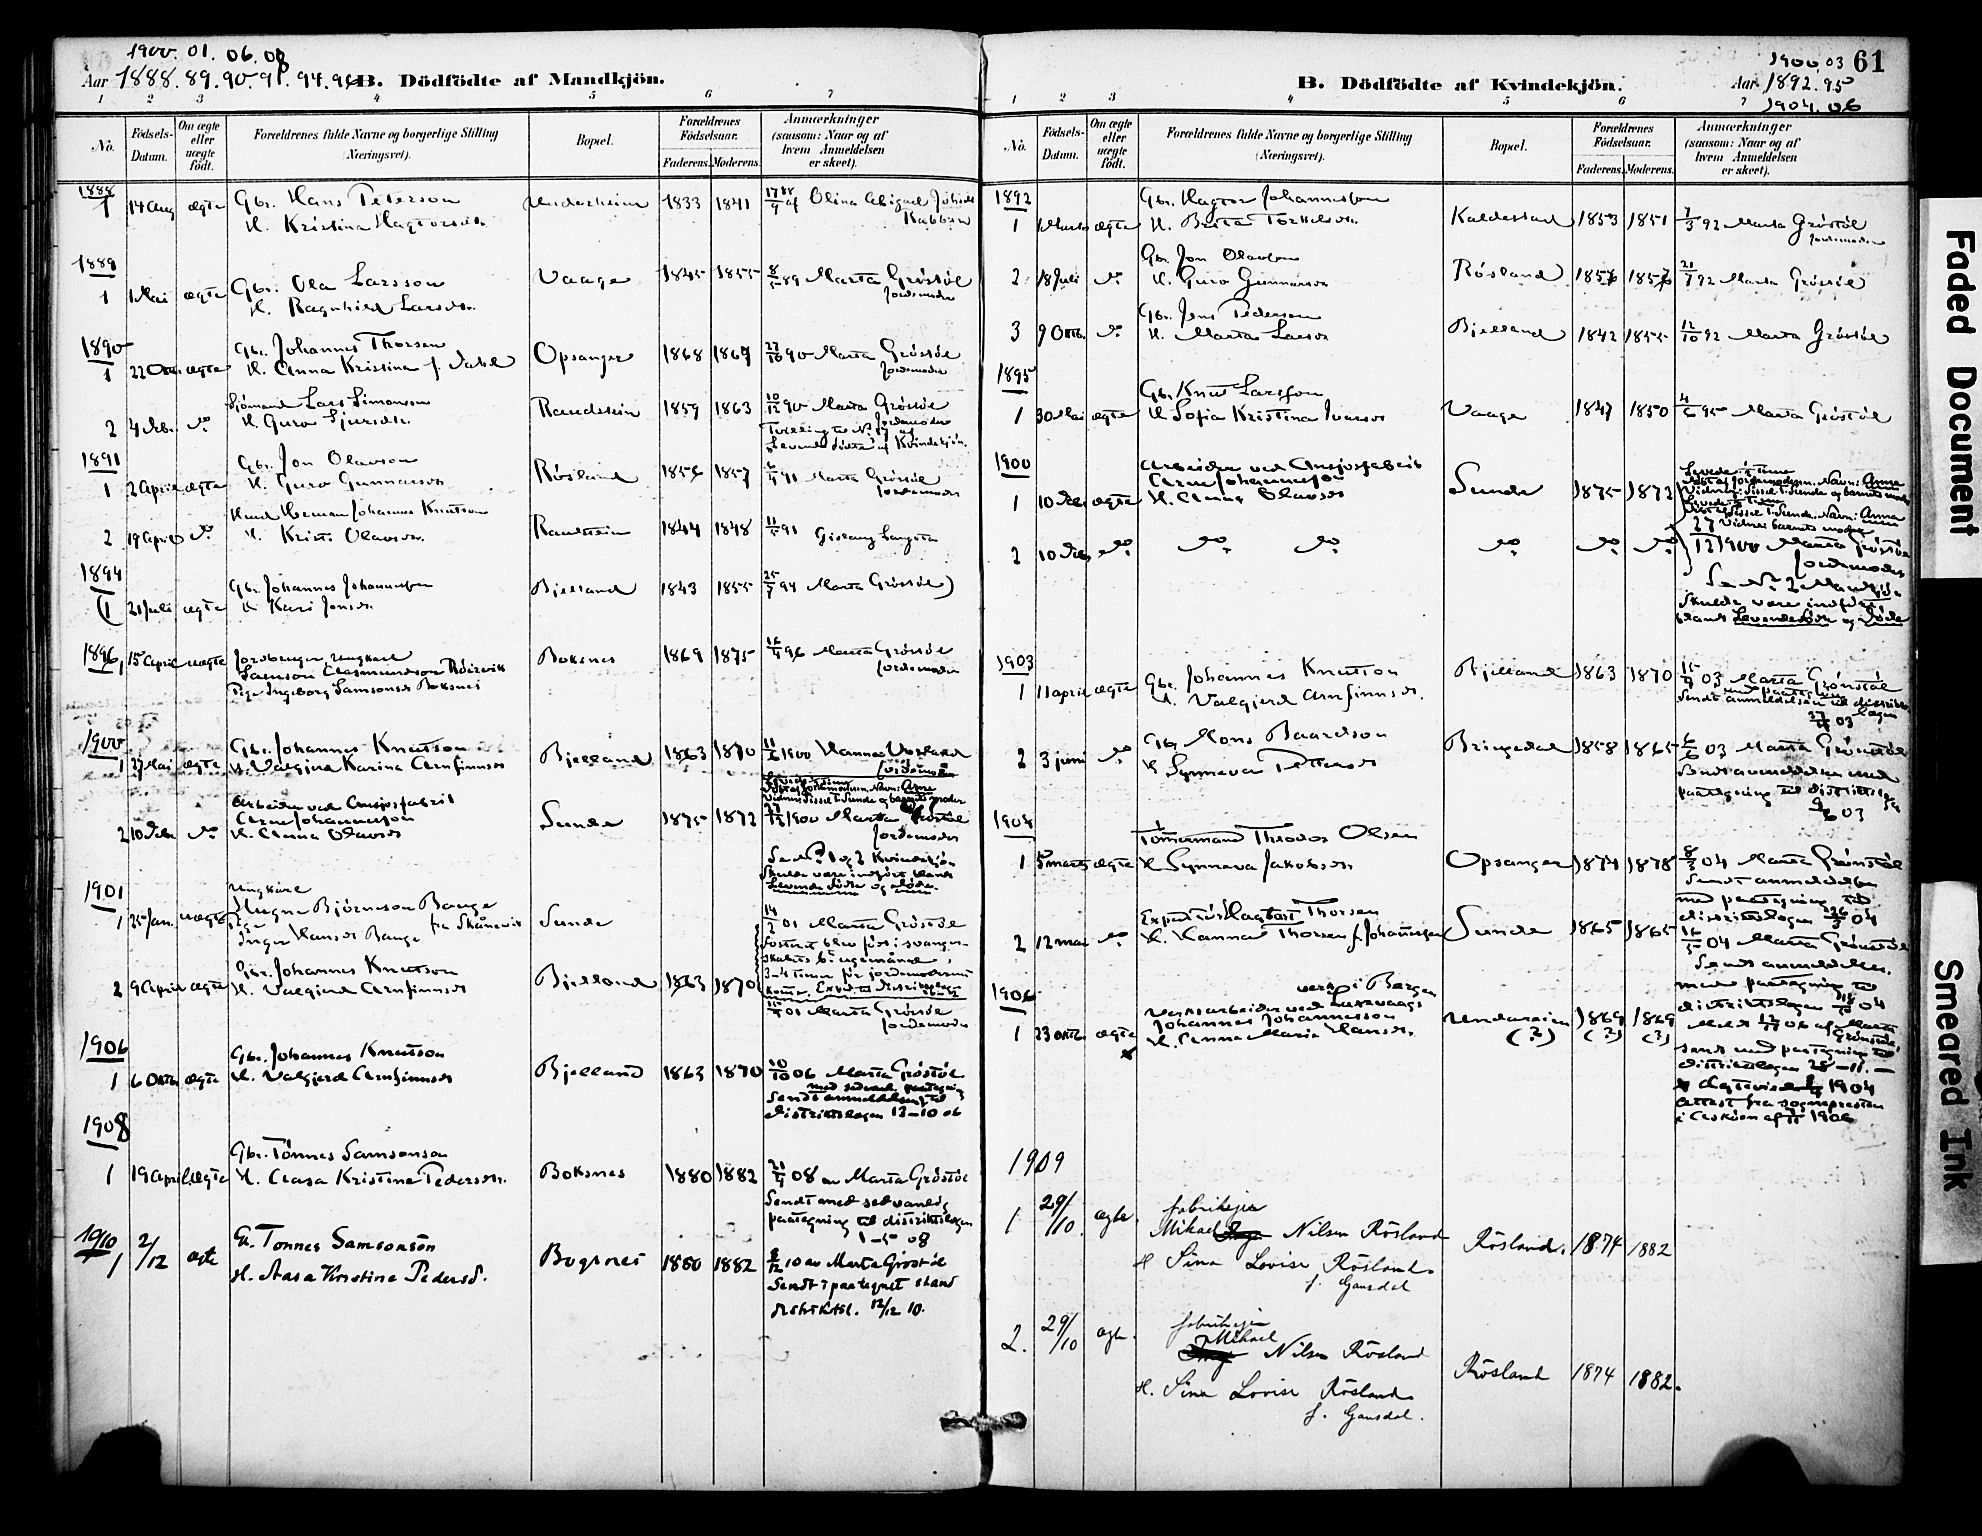 1900. 01. 06. 08
Aar 1888. 89. 90. 91. 94. 96 B. Dödfödte af Mandkjön.
1 2 3 4 5 6 7
No.
Födsels-Datum.
Om ægte eller uægte födt.
Forældrenes fulde Navne og borgerlige Stilling (Næringsvei).
Bopæl.
Forældrenes Födselsaar.
Faderens. Moderens.
Anmærkninger (saasom: Naar og af hvem Anmeldelsen er skeet).
1888
1 14 Aug ægte Gbr. Hans Peterson 1833 1841 Olina Abigael
H. Kristina Hagtorsdr.
1889
1 1 Mai ægte Gbr. Ola Larsson Vaage 1845 1855 8/5 89 Marta Gröstöl
H. Ragnhild Larsdr. Jordemoder
1890
1 22 Okt. ægte Gbr. Johannes Thorsen Opsanger 1868 1867 27/10 90 Marta Gröstöl
H. Anna Kristina f. Dahl Jordemoder
2 4 Dcbr. do Sjömand Lars Simonson Raudstein 1859 1863 10/12 90 Marta Gröstöl
H. Guro Sjursdr. Jordemoder
Tvilling til No 17 af
Levende födte af Kvindekjön.
1891
1 2 April ægte Gbr. Jon Olavson Rösland 1856 1857 6/4 91 Marta Gröstöl
H. Guro Gunnarson Jordemoder
2 19 April do Hmd Herman Johannes Knutson Raudstein 1844 1848 11/5 91 Gislaug
H. Kristi Olavsdr.
1894
(1 21 Juli ægte Gbr. Johannes Johannesson Bjelland 1843 1855 25/7 94 Marta Gröstöl)
H. Kari Jonsdr.
1896
1 15 April uægte Jordbruger, Ungkarl Boksnes 1869 1875 16/4 96 Marta Gröstöl
Samson Aasmundson Röisevik Jordemoder
Pige Ingeborg Samsonsdr Boksnes
1900
1 27 Mai ægte Gbr. Johannes Knutson Bjelland 1863 1870 11/6 1900 Hannes Vosland
H. Valgjerd Karina Arnfinnsdr
2 10 Dcbr do Arbeider ved Ansjosfabrik
Arne Johannesson Sunde 1875 1872 27/12 1900 Marta Gröstöl
H. Anna Olavsdr Jordemoder
Se No 1 og 2 Kvindekjön
Skulde være indfört blandt
Levende födte og döde.
1901
1 25 Jan. uægte Ungkarl
Mugne Björneson Bauge fra Skånevik Sunde 14/2 01 Marta Gröstöl
Pige
Inger Hansdr Bauge
Fosteret blev födt i svanger-
skabets 6te ugemåned,
3-4 timer för jordemoderens
2 9 April ægte Gbr. Johannes Knutson Bjelland 1863 1870
H. Valgjerd Arnfinnsdr 01 Marta Gröstöl
Jordemoder
1906
1 6 Oktbr ægte Gbr. Johannes Knutson Bjelland 1863 1870 20/10 06 Marta Gröstöl
H. Valgjerd Arnfinnsdr
med sedvanl. paategning
Sendt anmeldelsen til
distriktslægen 12-10 06
1908
1 19 April ægte Gbr. Tönnes Samsonson Boksnes 1880 1882 21/4 08 av Marta Gröstöl
H. Aasa Kristine Pedersdr.
Sendt med sedvanlig
paategning til distriktslægen
1-5 08
1910
1 2/12 ægte G. Tönnes Samsonsön Bogsnes 1880 1882 8/12 10 av Marta Gröstöl
H. Aasa Kristine Pedersd.
Sendt i paategnet stand
distriktsl. 12/12 10.
61
1900 03
B. Dödfödte af Kvindekjön.
Aar 1892. 95
1904. 06
1 2 3 4 5 6 7
No.
Födsels-Datum.
Om ægte eller uægte födt.
Forældrenes fulde Navne og borgerlige Stilling (Næringsvei).
Bopæl.
Forældrenes Födselsaar.
Faderens. Moderens.
Anmærkninger (saasom: Naar og af hvem Anmeldelsen er skeet).
1892
1 1 Marts ægte Gbr. Hagtor Johannesson Kaldestad 1853 1851 7/3 92 Marta Gröstöl
H. Brita Torkelsdr. Jordemoder
2 18 Juli do Gbr. Jon Olavson Rösland 1856 1857 21/7 92 Marta Gröstöl
H. Guro Gunnarson
3 9 Oktb. do Gbr. Jens Pederson Bjelland 1842 1855 12/10 92 Marta Gröstöl
H. Marta Larsdr
1895
1 30 Mai ægte Gbr. Knut Larsson Vaage 1847 1850 4/6 95 Marta Gröstöl
H. Sofia Kristina Ivarsdr
1900
1 10 Dcbr ægte Arbeider ved Ansjosfabrik
Arne Johannesson Sunde 1875 1872
H. Anna Olavsdr
Levede 1 time
Döbt af Jordemoderen. Navn: Anna
Vidner: Sissel T. Sunde og barnets moder
2 10 Dcbr do do do do do do
27/12 1900 Marta Gröstöl
Jordemoder
Se No 2 Mandkjön
Skulde være indfört
blandt Levendefödte og Döde
1903
1 11 April ægte Gbr. Johannes Knutson Bjelland 1863 1870 15/4 03 Marta Grönstöl
H. Valgjerd Arnfinnsdr.
med paategning
Sendt anmeldelsen til distrikts-
lægen
27/4 03
2 3 juni do Gbr. Mons Baardson Bringedal 1858 1865 6/6 03 Marta Grönstöl
H. Synneva Pettersdr
Sendt anmeldelsen med
paategning til distriktslægen
9/6 03
1904
1 5 marts ægte Tömmermand Theodor Olsen Opsanger 1874 1878 8/3 04 Marta Grönstöl
H. Synneva Jakobsdr
Sendt anmeldelsen
med paategning til
distriktslægen 26/3 04
2 12 mai do Expeditör Hagbart Thorsen Sunde 1865 1865 16/5 04 Marta Grönstöl
H. Hanna Thorsen f. Johannessen
Sendt anmeldelsen
med paategning til
distriktslægen 18/5 04
1906
1 23 oktbr ægte verk i Bergen
Verksarbeider ved Laxevaags
Johannes Johannesson Undarheim (?) 1869 (?) 1869 (?)
H. Anna Maria Hansdr.
Meldt 12/11 06 af Marta
Grönstöl,
sendt med paategning til
distriktslægen 28-11.-
1904
Attest fra sognepresten
i Asköen af 1906
1909
1 29/10 ægte. fabrikeier
Mikael Nilsen Rösland Rösland. 1874 1882
H Sina Lovise Rösland.
f. Gausdal
2. 29/10 ægte. fabrikeier
Mikael
Nilsen Rösland Rösland 1874 1882.
H. Sina Lovise Rösland.
f. Gausdal.
Faded Document
Smeared Ink